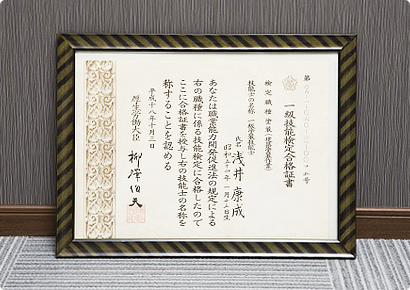 第
一級技能検定合格証書
検定職種 塗装
技能士の名称 一級塗装技能士
氏名 浅井康成
昭和
あなたは職業能力開発促進法の規定による
右の職種に係る技能検定に合格したので
ここに合格証書を授与し右の技能士の名称を
称することを認める
平成十八年十月三日
厚生労働大臣 柳澤伯夫